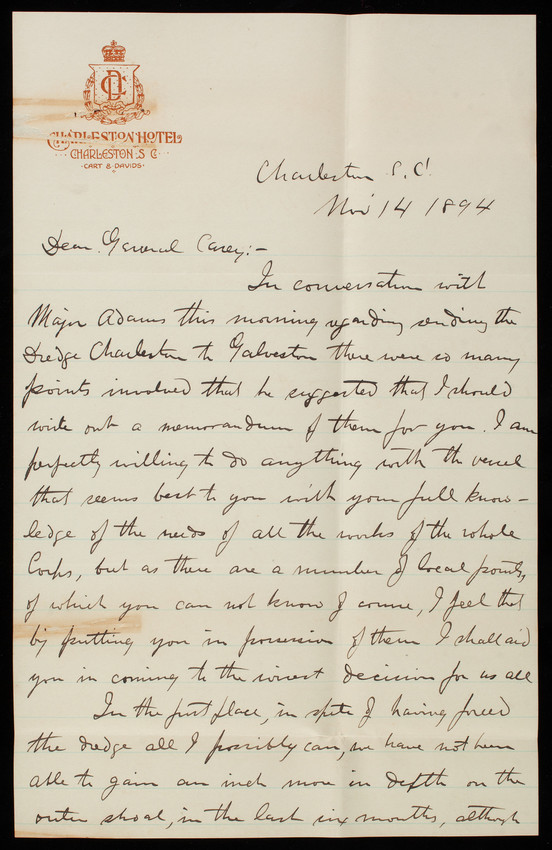 CHARLESTON HOTEL
CHARLESTON S C
CART & DAVIDS
Charleston S.C.
Nov 14 1894
Dear General Casey:-
In conversation with
Major Adams this morning regarding sending the
Dredge Charleston to Galveston there were so many
points involved that he suggested that I should
write out a memorandum of them for you. I am
perfectly willing to do anything with the vessel
that seems best to you with your full know-
ledge of the needs of all the works of the whole
Corps, but as there are a number of local points,
of which you can not know of course, I feel that
by putting you in possession of them I shall aid
you in coming to the wisest decision for us all
In the first place, in spite of having forced
the dredge all I possibly can, we have not been
able to gain an inch more in depth on the
outer shoal, in the last six months, although